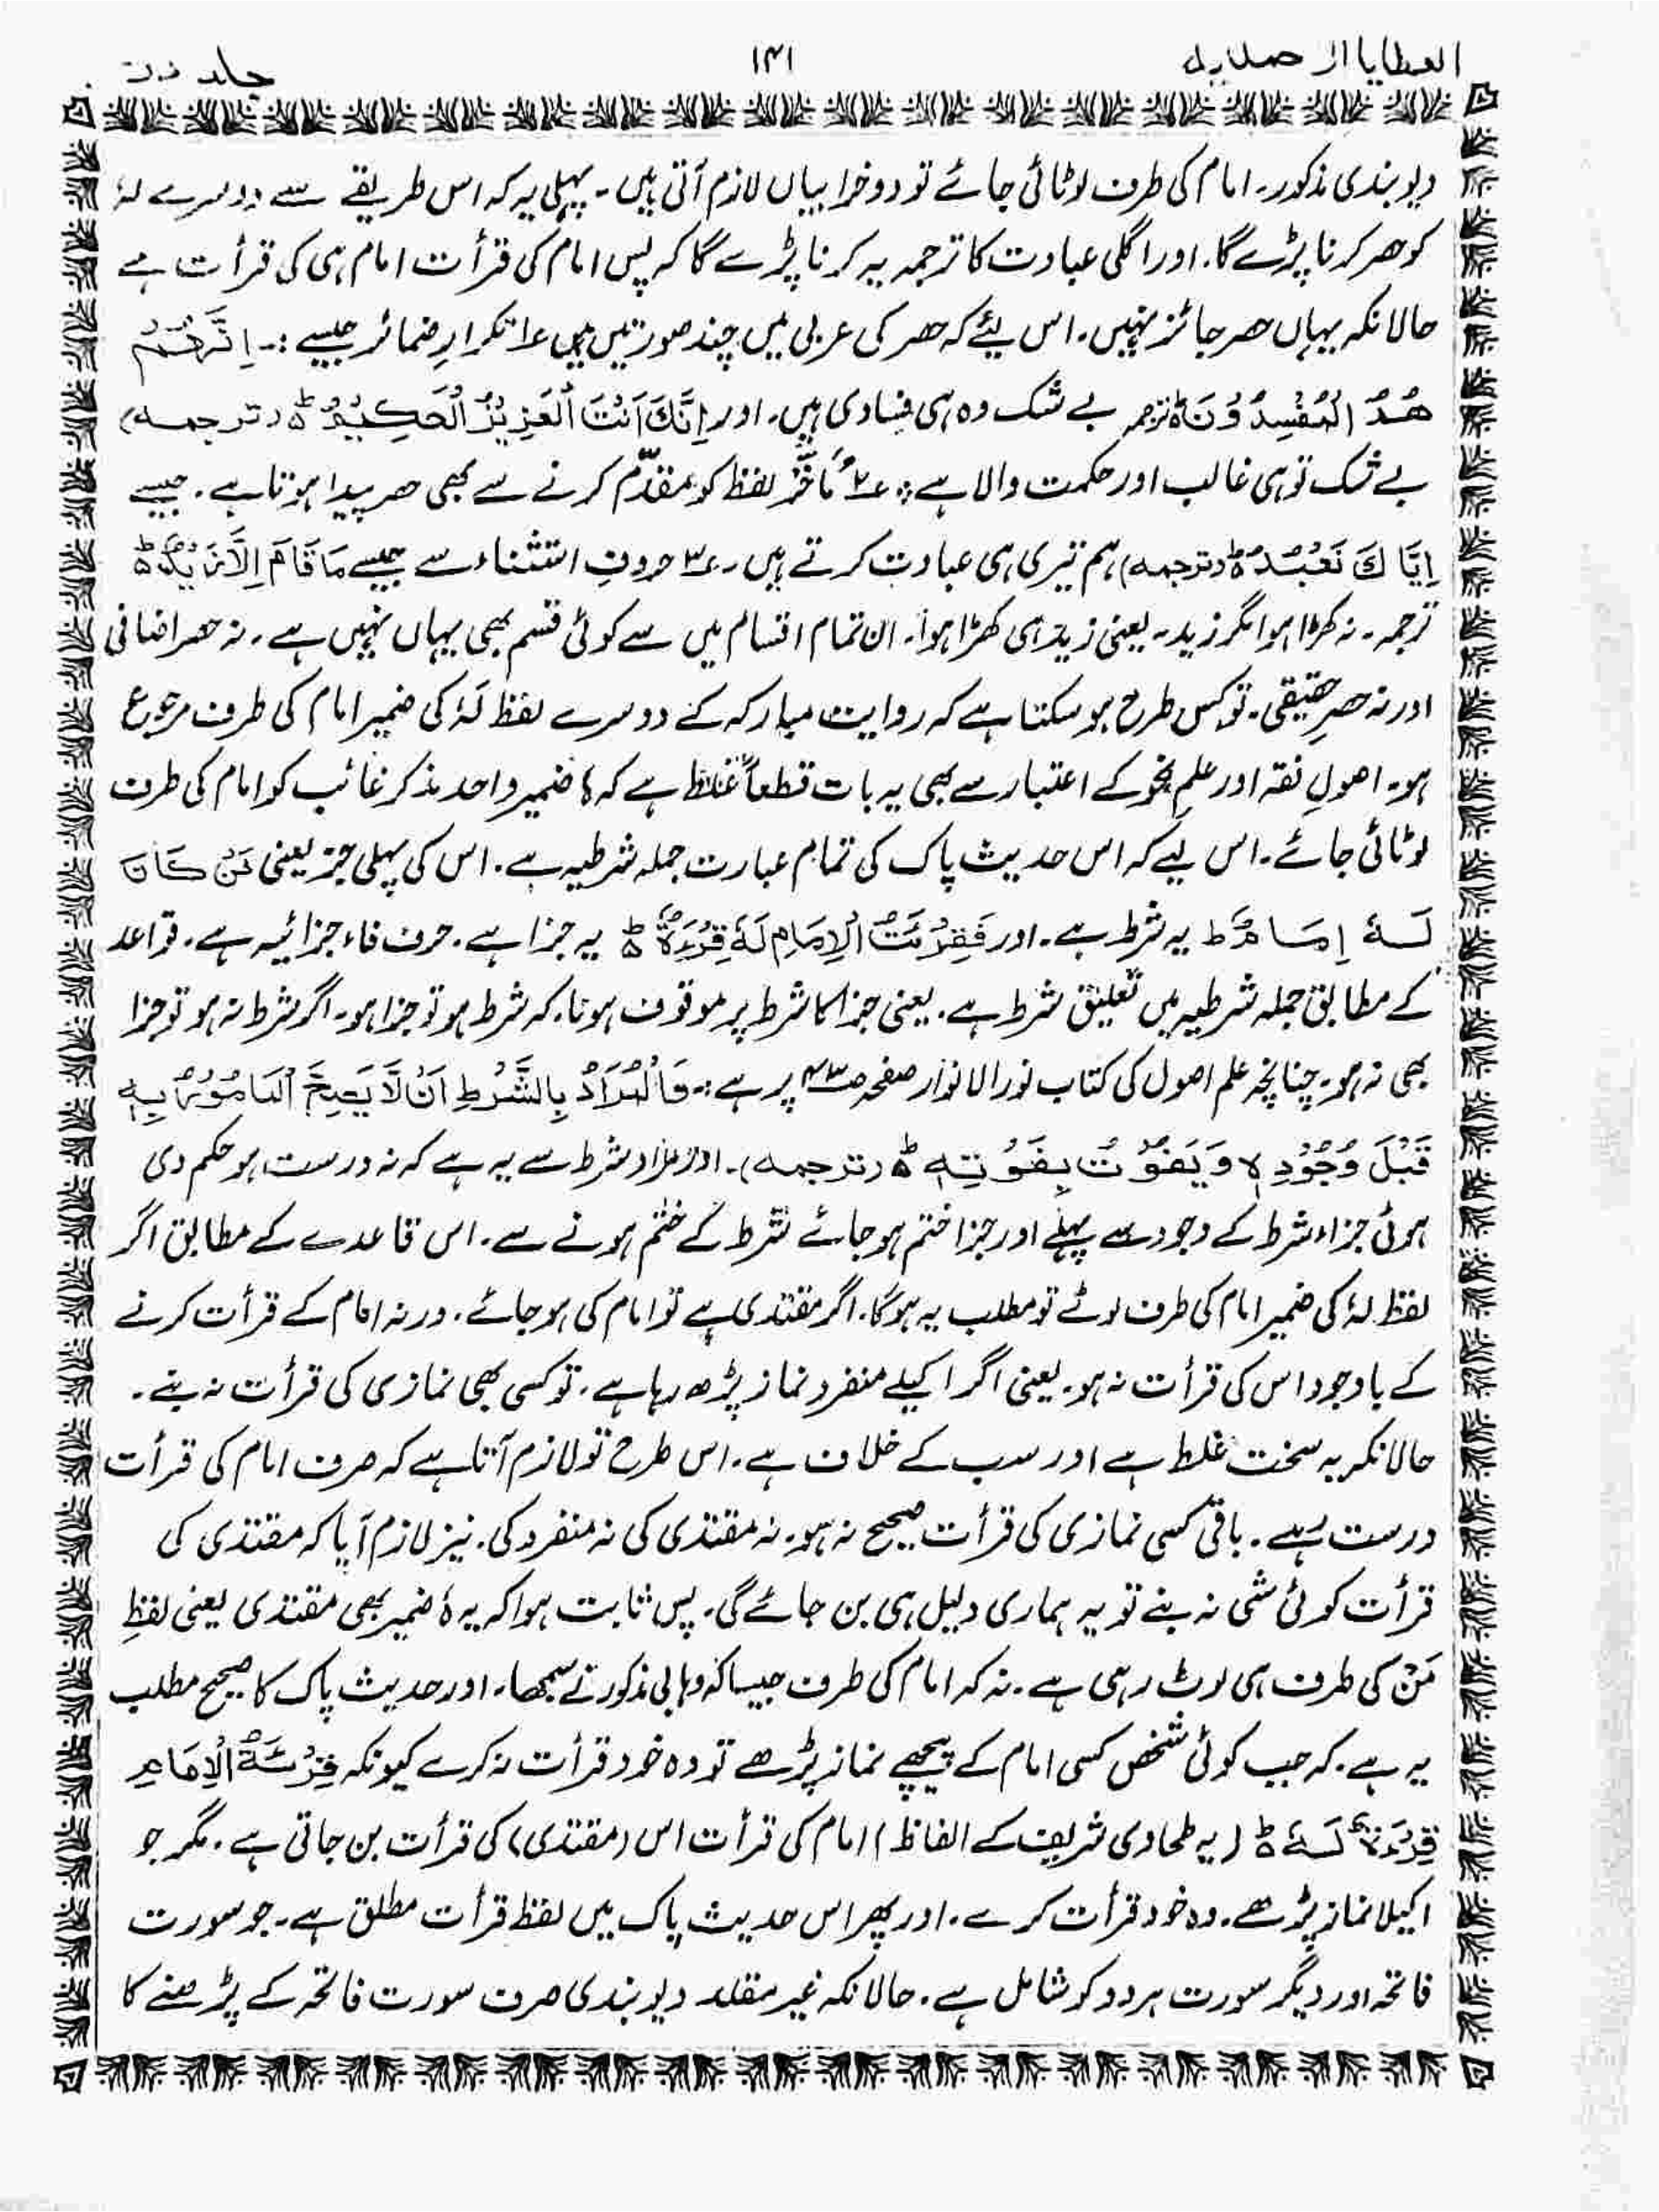 العطایا ۱۴۱ جلد
دیوبندی مذکور۔ امام کی طرف لوٹائی جائے تو دو خرابیاں لازم آتی ہیں۔ پہلی یہ کہ اس طریقے سے دوسرے لہٗ
کو حصر کرنا پڑے گا۔ اور اگلی عبادت کا ترجمہ یہ کرنا پڑے گا کہ پس امام کی قرأت امام ہی کی قرأت ہے
حالانکہ یہاں حصر جائز نہیں۔ اس لیئے کہ حصر کی عربی میں چند صورتیں ہیں ۱؎ تکرارِ ضمائر جیسے :۔ اِنَّهُمْ
هُمُ الْمُفْسِدُوْنَ ط ترجمہ بے شک وہ ہی فسادی ہیں۔ اور اِنَّكَ اَنْتَ الْعَزِيْزُ الْحَكِيْمُ ط (ترجمہ)
بے شک تو ہی غالب اور حکمت والا ہے : ۲؎ مُأخَّر لفظ کو مقدّم کرنے سے بھی حصر پیدا ہوتا ہے۔ جیسے
اِيَّاكَ نَعْبُدُ ط (ترجمہ) ہم تیری ہی عبادت کرتے ہیں۔ ۳؎ حروفِ استثناء سے جیسے مَا قَامَ اِلَّا زَيْدٌ ط
ترجمہ۔ نہ کھڑا ہوا مگر زید۔ یعنی زید ہی کھڑا ہوا۔ ان تمام اقسام میں سے کوئی قسم بھی یہاں نہیں ہے۔ نہ حصر اضافی
اور نہ حصرِ حقیقی۔ تو کس طرح ہو سکتا ہے کہ روایت مبارکہ کے دوسرے لفظ لَہٗ کی ضمیر امام کی طرف مرجوع
ہو۔ اصولِ فقہ اور علمِ نحو کے اعتبار سے بھی یہ بات قطعاً غلط ہے کہ ہٗ ضمیر واحد مذکر غائب کو امام کی طرف
لوٹائی جائے۔ اس لیے کہ اس حدیث پاک کی تمام عبارت جملہ شرطیہ ہے۔ اس کی پہلی جز یعنی مَنْ كَانَ
لَهٗ اِمَامٌ ط یہ شرط ہے۔ اور فَقِرْئَتُ الْاِمَامِ لَهٗ قِرْءَةٌ ط یہ جزا ہے۔ حرف فاء جزائیہ ہے۔ قواعد
کے مطابق جملہ شرطیہ میں تعلیق شرط ہے۔ یعنی جزا کا شرط پر موقوف ہونا۔ کہ شرط ہو تو جزا ہو۔ اگر شرط نہ ہو تو جزا
بھی نہ ہو۔ چنانچہ علم اصول کی کتاب نور الانوار صفحہ ۴۳ پر ہے :۔ وَالْمُرَادُ بِالشَّرْطِ اَنْ لَّا يَصِحَّ الْمَامُوْرُ بِهٖ
قَبْلَ وُجُوْدِهٖ وَيَفُوْتُ بِفَوْتِهٖ ط (ترجمہ)۔ اور مراد شرط سے یہ ہے کہ نہ درست ہو حکم دی
ہوئی جزاء شرط کے وجود سے پہلے اور جزا ختم ہو جائے شرط کے ختم ہونے سے۔ اس قاعدے کے مطابق اگر
لفظ لہٗ کی ضمیر امام کی طرف لوٹے تو مطلب یہ ہوگا۔ اگر مقتدی ہے تو امام کی ہو جائے۔ ورنہ امام کے قرأت کرنے
کے باوجود اس کی قرأت نہ ہو۔ یعنی اگر اکیلے منفرد نماز پڑھ رہا ہے۔ تو کسی بھی نمازی کی قرأت نہ بنے۔
حالانکہ یہ سخت غلط ہے اور سب کے خلاف ہے۔ اس طرح تو لازم آتا ہے کہ صرف امام کی قرأت
درست رہے۔ باقی کسی نمازی کی قرأت صحیح نہ ہو۔ نہ مقتدی کی نہ منفرد کی۔ نیز لازم آیا کہ مقتدی کی
قرأت کوئی شی نہ بنے تو یہ ہماری دلیل ہی بن جائے گی۔ پس ثابت ہوا کہ یہ ہٗ ضمیر بھی مقتدی یعنی لفظِ
مَنْ کی طرف ہی لوٹ رہی ہے۔ نہ کہ امام کی طرف جیسا کہ وہابی مذکور نے سمجھا۔ اور حدیث پاک کا صحیح مطلب
یہ ہے۔ کہ جب کوئی شخص کسی امام کے پیچھے نماز پڑھے تو وہ خود قرأت نہ کرے کیونکہ قِرْئَةُ الْاِمَامِ
قِرْءَةٌ لَهٗ ط (یہ طحاوی شریف کے الفاظ) امام کی قرأت اس (مقتدی) کی قرأت بن جاتی ہے۔ مگر جو
اکیلا نماز پڑھے۔ وہ خود قرأت کرے۔ اور پھر اس حدیث پاک میں لفظ قرأت مطلق ہے۔ جو سورت
فاتحہ اور دیگر سورت ہر دو کو شامل ہے۔ حالانکہ غیر مقلد دیوبندی صرف سورت فاتحہ کے پڑھنے کا